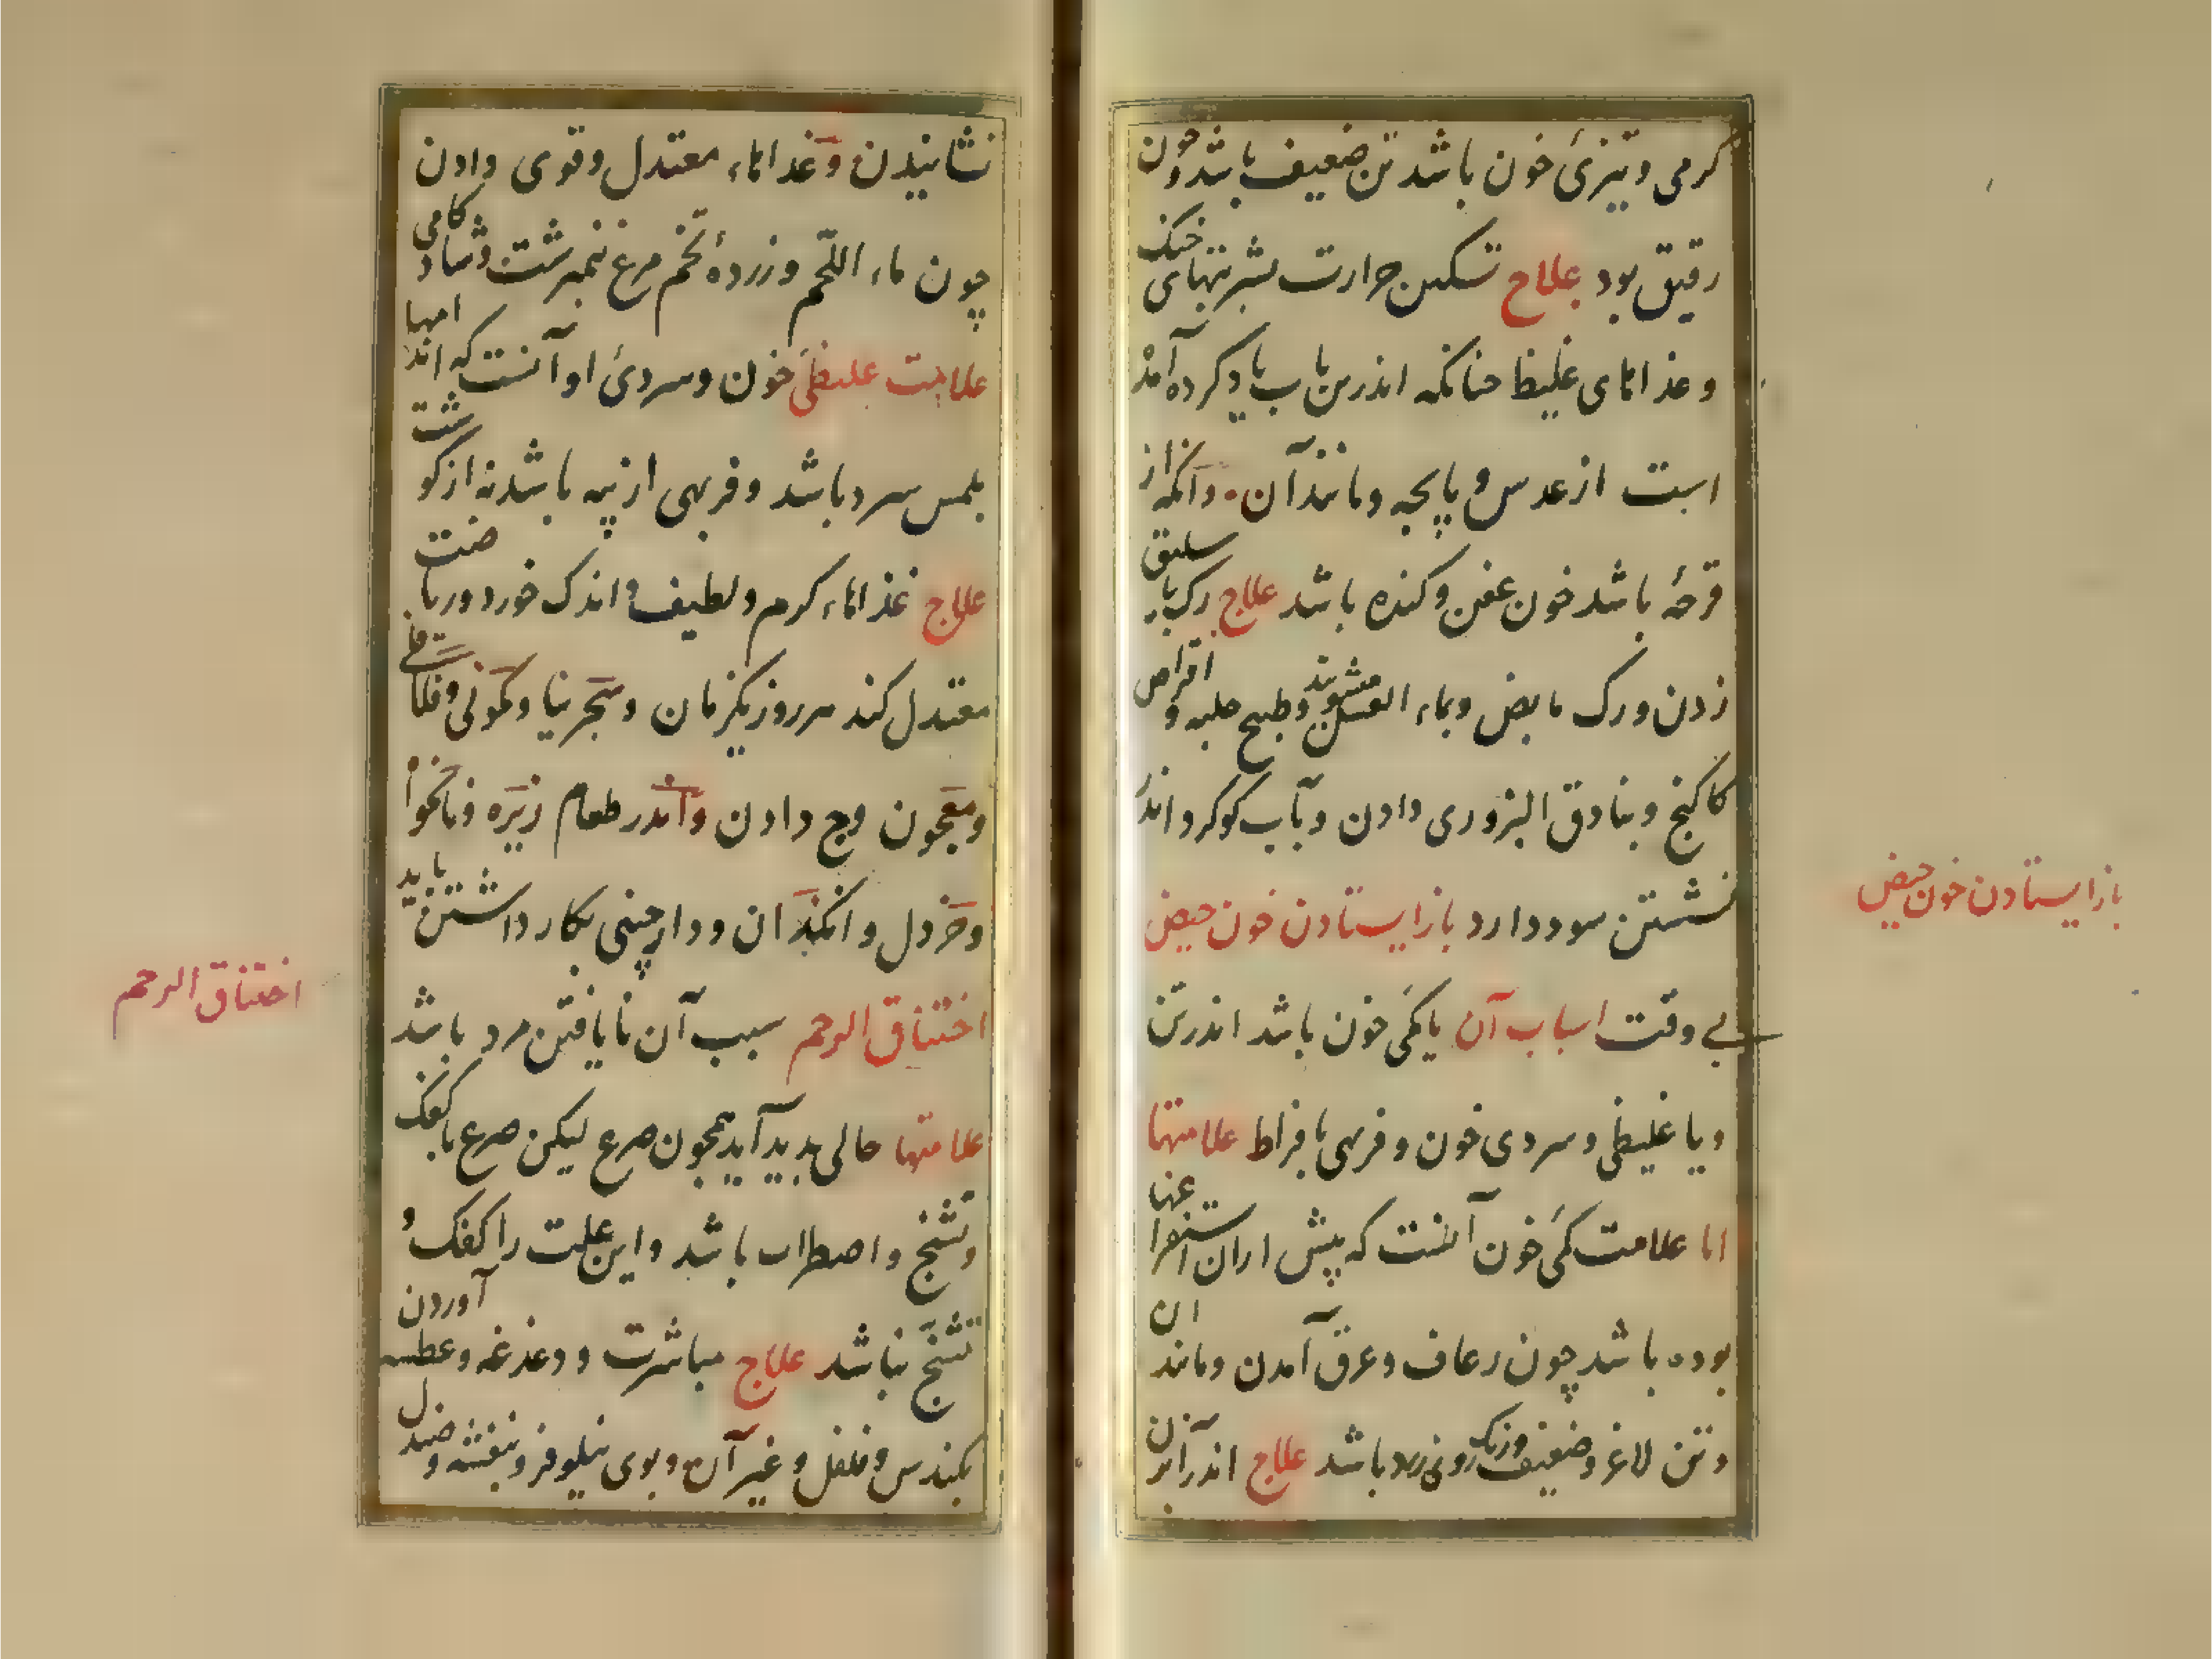 کرمی و تیزیٔ خون باشد تن ضعیف باشد و خون
رقیق بود علاج تسکین حرارت بشربتهای خنک
و غذاهای غلیظ چنانکه اندرین باب یاد کرده آمد
است از عدس و پایچه و مانند آن و آنکه از
قرحهٔ باشد خون عفن و کنده باشد علاج رک باسلیق
زدن و رک مابض و بماء العسل مشویند و طبیخ حلبه و اقراص
کاکنج و بنادق البزوری دادن و بآب کوکرد اندر
نشستن سود دارد باز ایستادن خون حیض
بی وقت اسباب آن یا کمیٔ خون باشد اندر تن
و یا غلیظی و سردی خون و فربهی بافراط علامتها
اما علامت کمیٔ خون آنست که پیش ازان استفراغها
بوده باشد چون رعاف و عرق آمدن و مانند ان
و تن لاغر و ضعیف و رنک روی زرد باشد علاج اندر آبزن
باز ایستادن خون حیض
نشانیدن و غذاهاء معتدل و قوی دادن
چون ماء اللحم و زردهٔ تخم مرغ نیمبرشت و شادکامی
علامت غلیظیٔ خون و سردیٔ او آنست که اندامها
بلمس سرد باشد و فربهی از پیه باشد نه از کوشت
علاج غذاهاء کرم و لطیف و اندک خورد و ریاضت
معتدل کند هر روز یکزمان و سجرینا و کمونی و فلافلی
و معجون وج دادن و اندر طعام زیره و نانخواه
و خردل و انکدان و دارچینی بکار داشتن باید
اختناق الرحم سبب آن نایافتن مرد باشد
علامتها حالی پدید آید همچون صرع لیکن صرع با کفک
و تشنج و اضطراب باشد و این علت را کفک و
تشنج نباشد علاج مباشرت و دغدغه و عطسه آوردن
بکندس و فلفل و غیر آن و بوی نیلوفر و بنفشه و صندل
اختناق الرحم